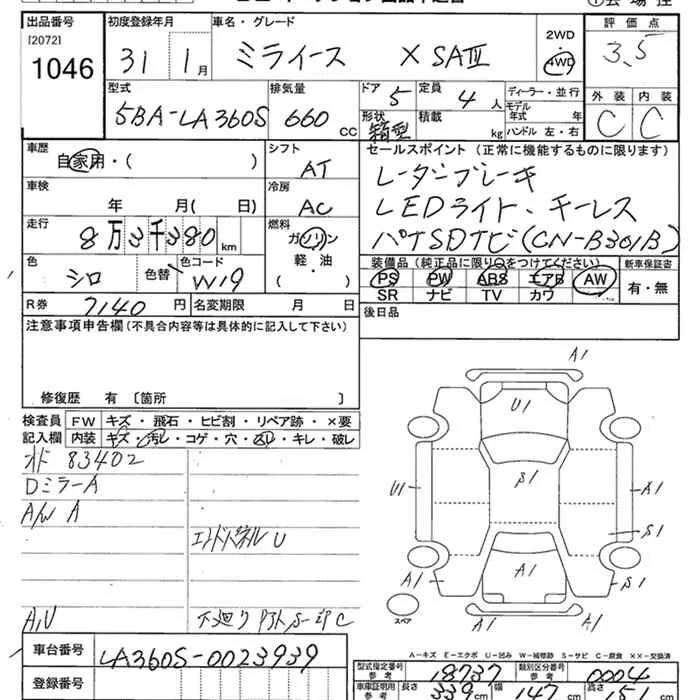 出品番号 初度登録年月 車名・グレード 2WD 評価点
[2072] 1046 31 1月 ミライース X SAⅢ 4WD 3.5
型式 排気量 ドア 定員 ディーラー・並行 外装 内装
5BA-LA360S 660 CC 5 4人 モデル年式 年 C C
形状 箱型 積載 kg ハンドル 左・右
車歴 シフト セールスポイント (正常に機能するものに限ります)
自家用・( ) AT
車検 冷房 LEDライト・キーレス
年 月( 日) AC パナSDナビ(CN-B301B)
走行 燃料
8万3千380km ガソリン
軽・油
( )
色 色替 色コード 装備品 (純正品に限り○をつけてください) 新車保証書
シロ W19 PS PW ABS エアB AW 有・無
SR ナビ TV カワ
R券 7140円 名変期限 月 日 後日品
注意事項申告欄(不具合内容等は具体的に記入して下さい)
修復歴 有 〔箇所 〕
検査員 FW キズ・飛石・ヒビ割・リペア跡・×要
記入欄 内装 キズ・汚レ・コゲ・穴・スレ・キレ・破レ
83402
DミラーA
A/W A
エンドパネルU
A,U
下廻り
A1
U1
S1
U1 A1
S1
A1 A1 S1
A1
スペア
A-キズ E-エクボ U-凹み W-補修跡 S-サビ C-腐食 ××-交換済
車台番号 LA360S-0023939
登録番号
型式指定番号 参考 18737 類別区分番号 参考 0004
車庫証明用 参考 長さ 339cm 幅 147cm 高さ 151